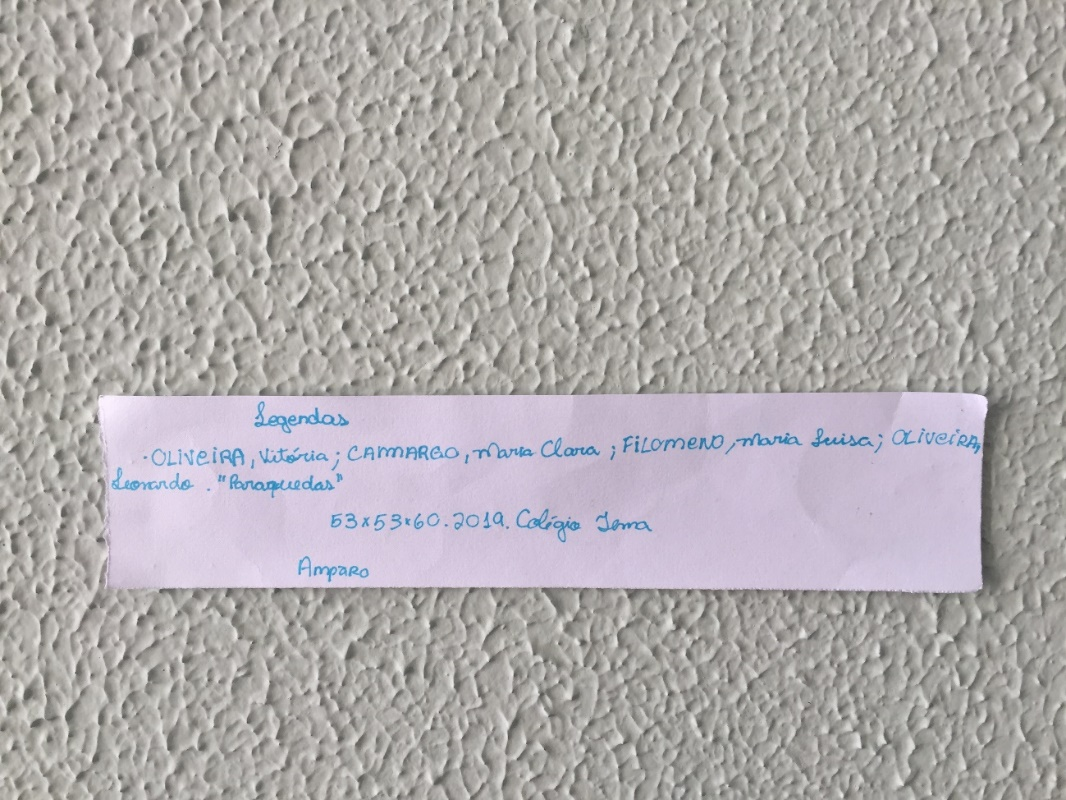 Legendas
·OLIVEIRA, Vitória; CAMARGO, Maria Clara; FILOMENO, Maria Luisa; OLIVEIRA,
Leonardo. "Paraquedas"
53x53x60. 2019. Colégio Tema
Amparo